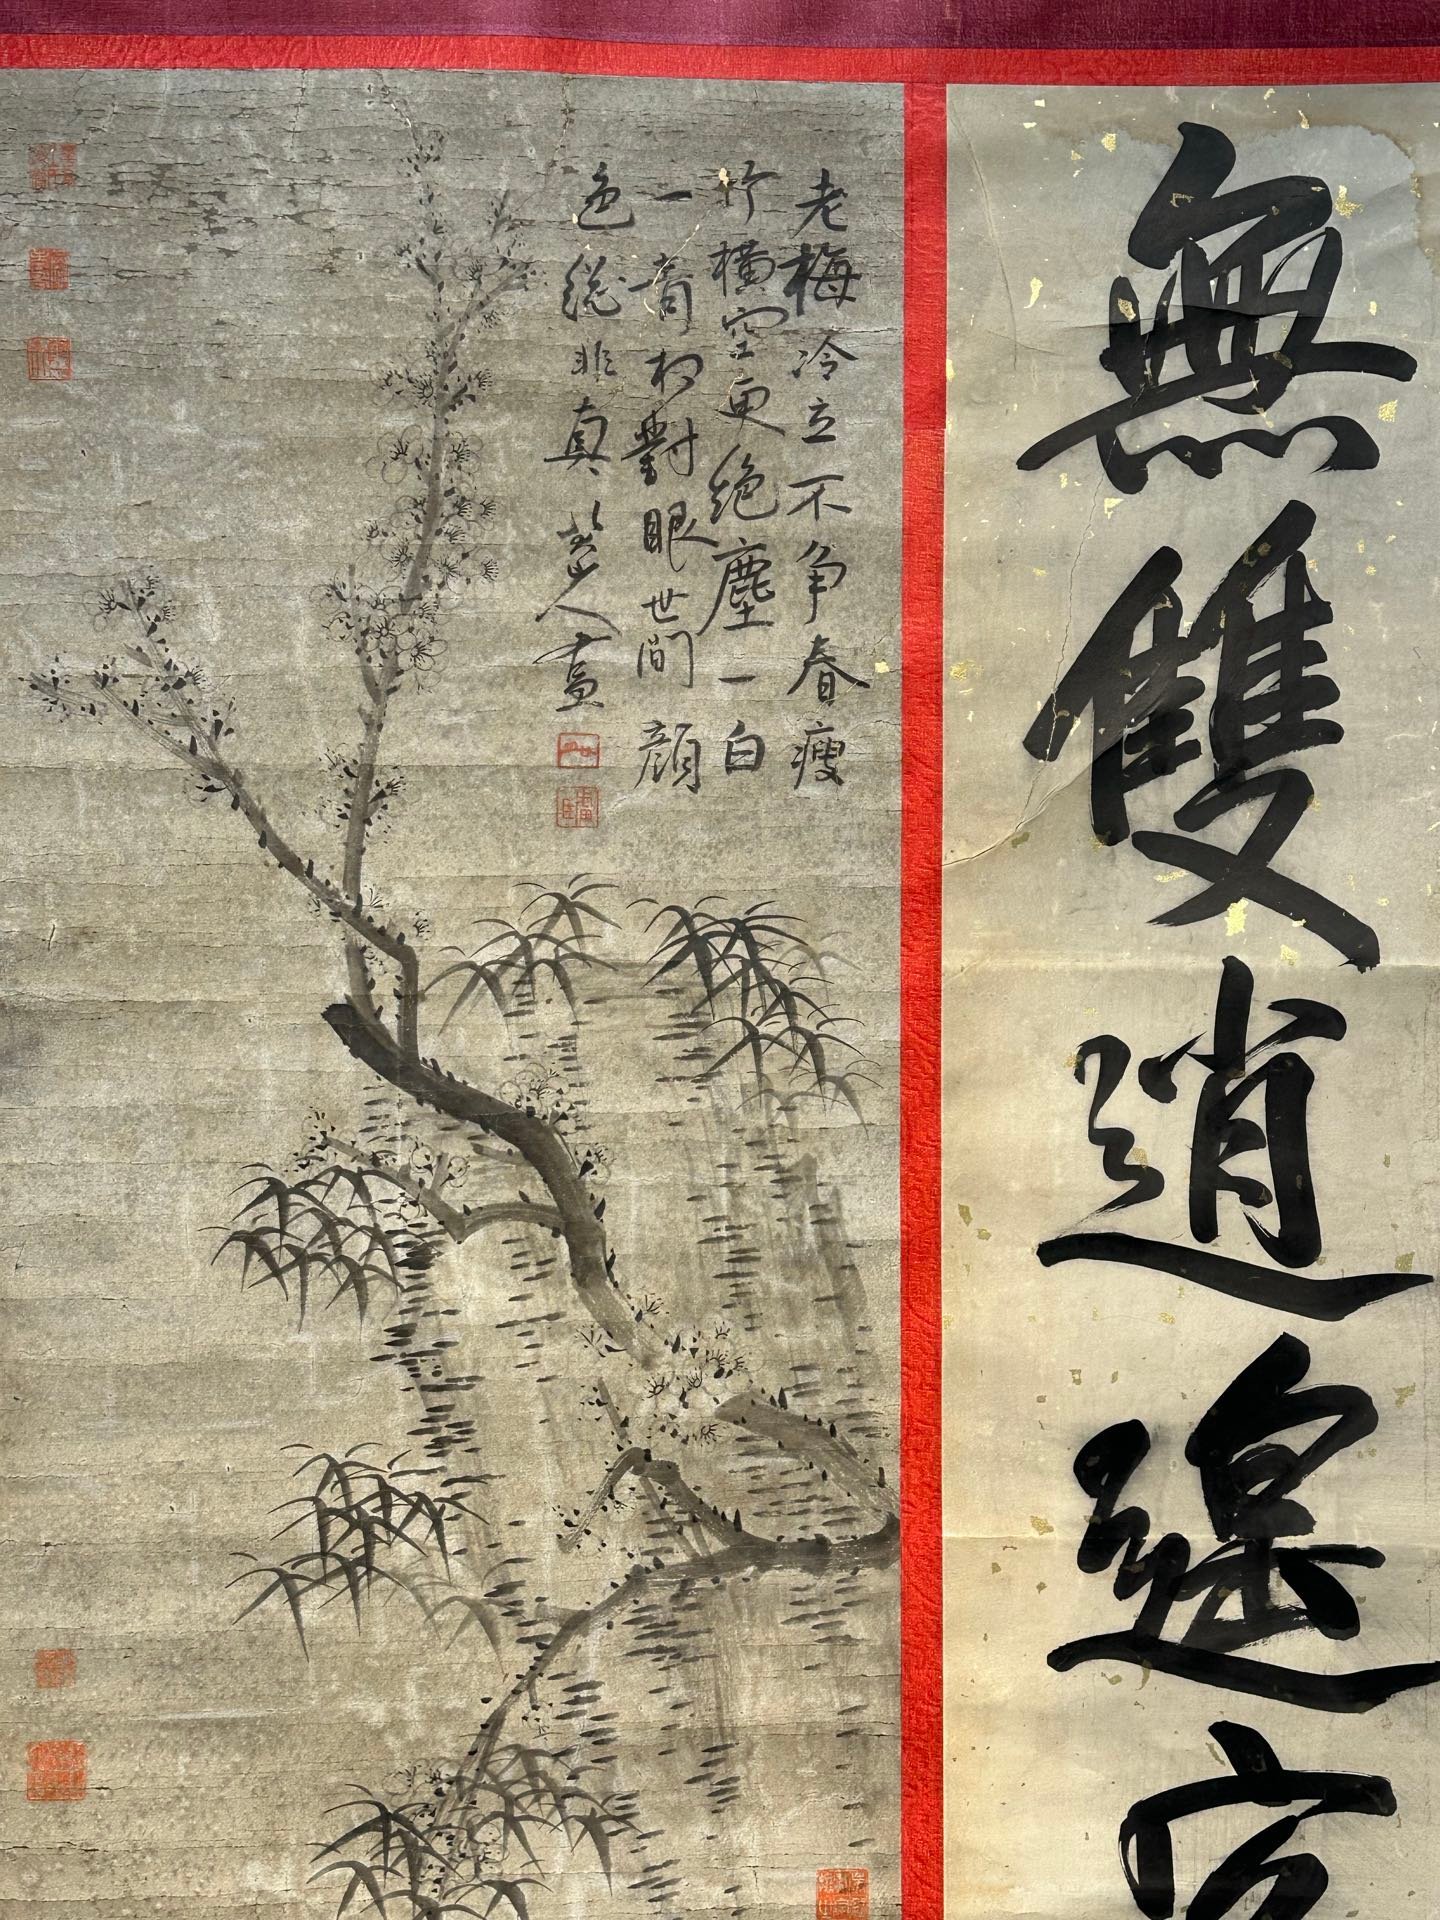 無雙逍遙
老梅冷立不争春瘦
竹橫空更絶塵一白
一青相對眼世間顏
色總非真 八大山人畫